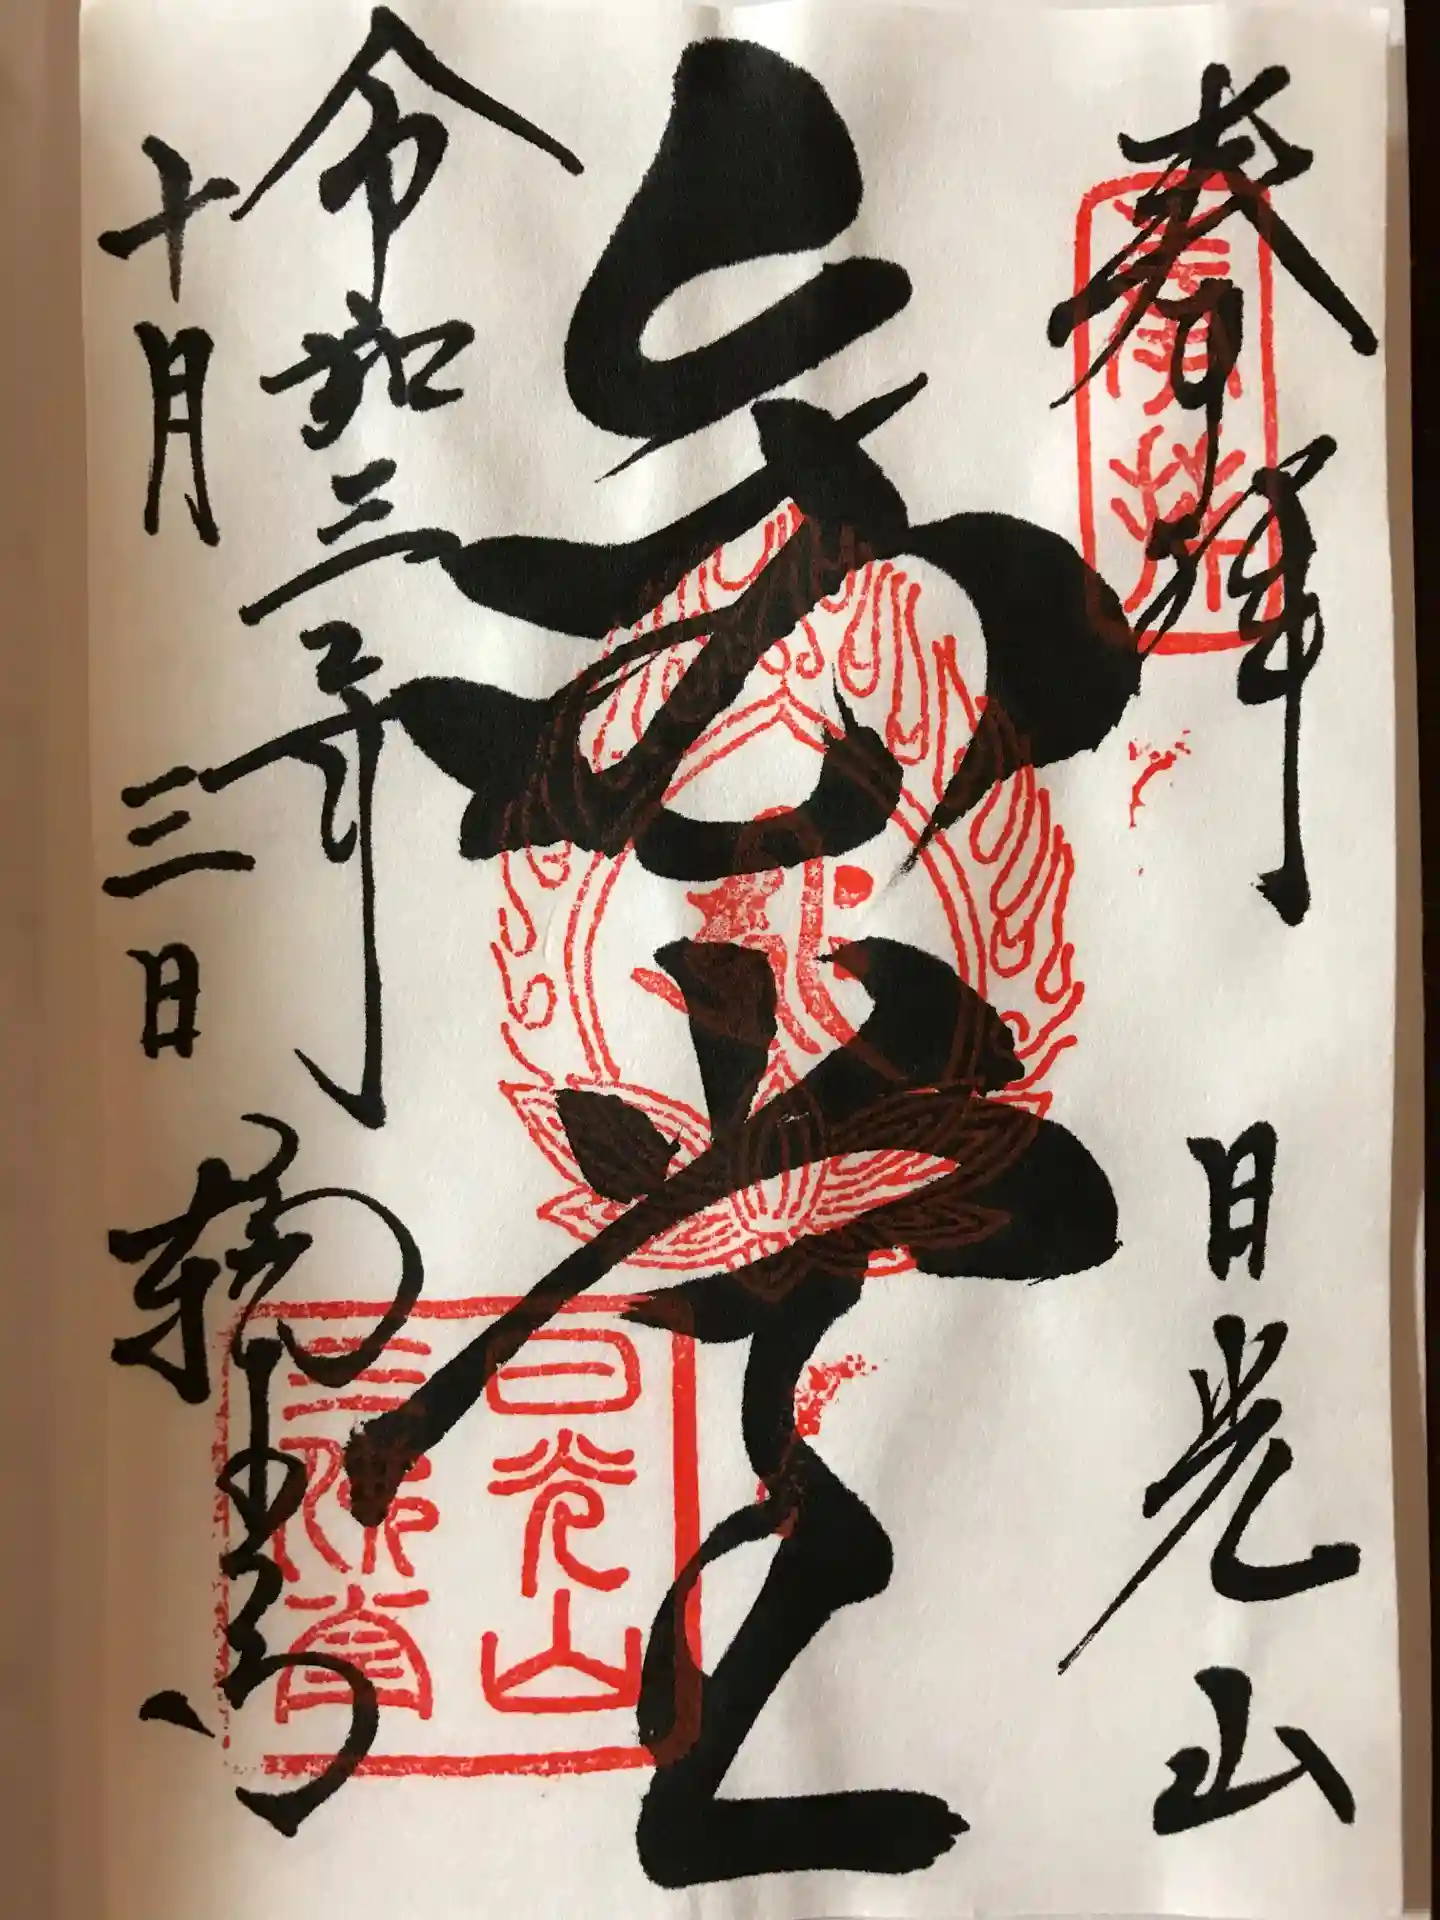 奉拝 日光山
堂
令和三年
十月三日 輪王寺
日光山
三佛堂